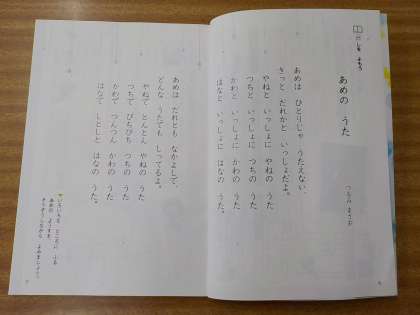 しを よもう
あめの うた
つるみ まさお
あめは ひとりじゃ うたえない、
きっと だれかと いっしょだよ。
やねと いっしょに やねの うた
つちと いっしょに つちの うた
かわと いっしょに かわの うた
はなと いっしょに はなの うた。
あめは だれとも なかよしで、
どんな うたでも しってるよ。
やねで とんとん やねの うた
つちで ぴちぴち つちの うた
かわで つんつん かわの うた
はなで しとしと はなの うた。
いろいろな ところに ふる
あめの ようすを
そうぞうしながら よみましょう。